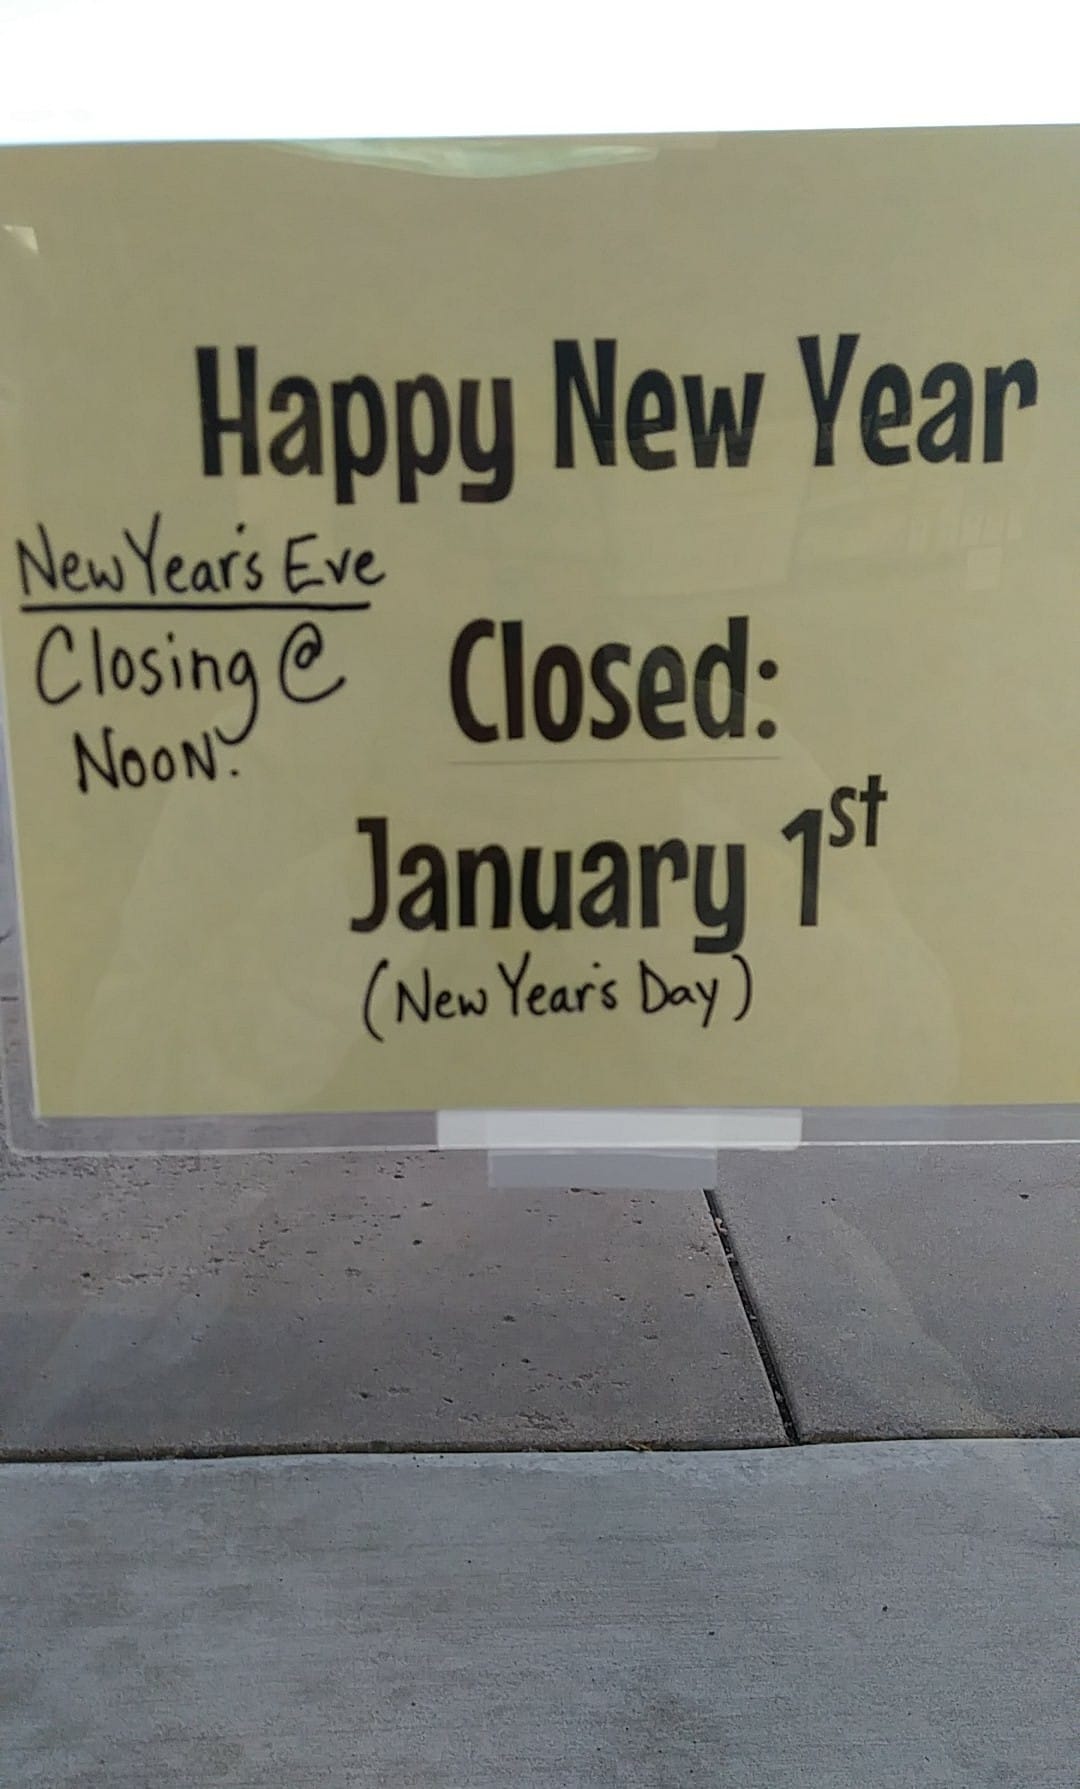 Happy New Year
New Year's Eve
Closing @
NOON.
Closed:
January 1st
(New Year's Day)